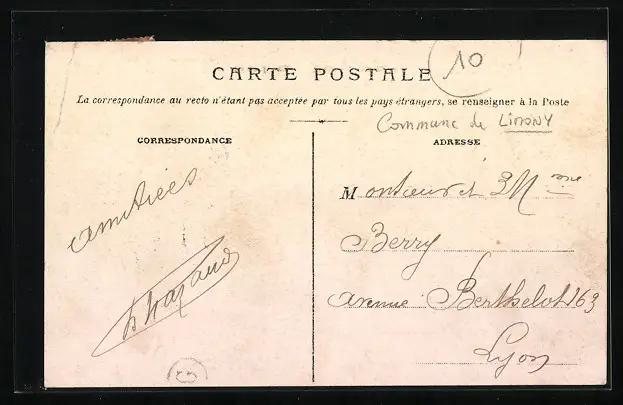 10
CARTE POSTALE
La correspondance au recto n'étant pas acceptée par tous les pays étrangers, se renseigner à la Poste
Commune de LIMONY
CORRESPONDANCE
ADRESSE
amitiées
Monsieur et Mme
Berry
avenue Berthelot 163
Lyon